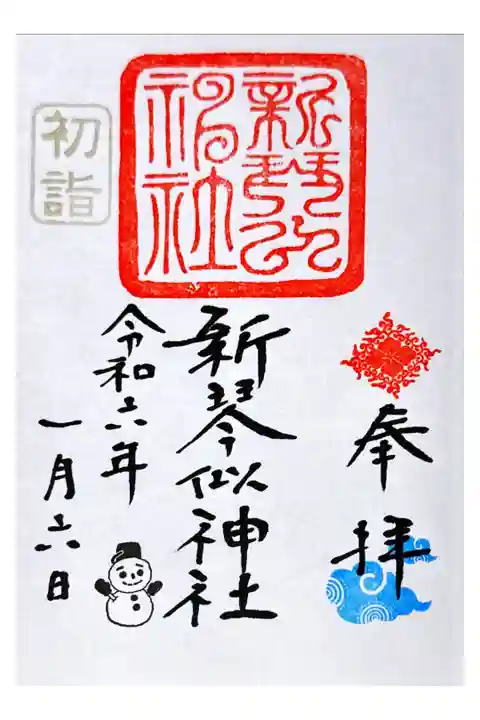 奉拝
新琴似神社
新琴似神社
令和六年
一月六日
初詣